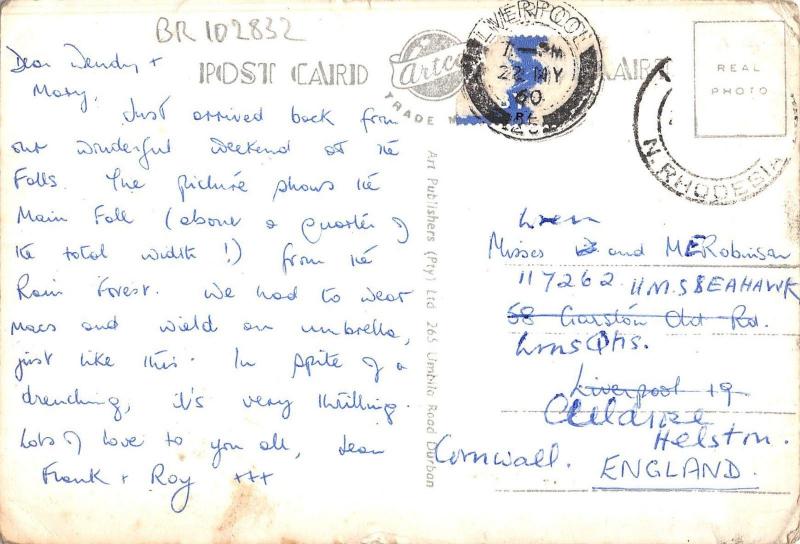 BR 102832
POST CARD
Artco
TRADE M
LIVERPOOL
22 MY
60
REAL
PHOTO
N. RHODESIA
Dear Wendy +
Mary, Just arrived back from
our wonderful weekend at the
Falls. The picture shows the
Main Fall (about a quarter of
the total width!) from the
Rain Forest. We had to wear
macs and wield an umbrella,
just like this. In spite of a
drenching, it's very thrilling.
Lots of love to you all, Jean
Frank + Roy +++
Art Publishers (Pty) Ltd 265 Umbilo Road Durban
Wren
Misses W and M E Robinson
117262 H.M.S SEAHAWK
68 Garston Old Rd.
Wrns Qtrs.
Liverpool 19
Culdrose
Helston.
Cornwall.
ENGLAND.